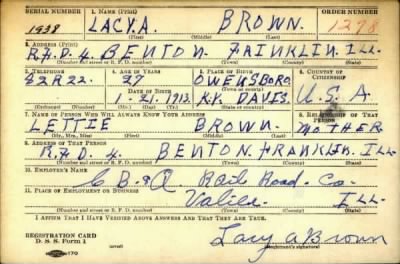 SERIAL NUMBER 1. NAME (Print) ORDER NUMBER
1938 LACY A. BROWN. 1278
(First) (Middle) (Last)
2. ADDRESS (Print)
R.F.D 4. BENTON. FRINKLIN. ILL.
(Number and street or R. F. D. number) (Town) (County) (State)
3. TELEPHONE 4. AGE IN YEARS 5. PLACE OF BIRTH 6. COUNTRY OF CITIZENSHIP
82R22. 27 OWENSBORO. U.S.A
DATE OF BIRTH (Town or county)
1-21.1913. KY. DAVIS.
(Exchange) (Number) (Mo.) (Day) (Yr.) (State or country)
7. NAME OF PERSON WHO WILL ALWAYS KNOW YOUR ADDRESS 8. RELATIONSHIP OF THAT PERSON
LETTIE BROWN. MOTHER
(Mr., Mrs., Miss) (First) (Middle) (Last)
9. ADDRESS OF THAT PERSON
R.F.D 4. BENTON. FRANKLIN. ILL
(Number and street or R. F. D. number) (Town) (County) (State)
10. EMPLOYER'S NAME
C B & Q. Rail Road. Co.
11. PLACE OF EMPLOYMENT OR BUSINESS
ILL.
(Number and street or R. F. D. number) (Town) (County) (State)
I AFFIRM THAT I HAVE VERIFIED ABOVE ANSWERS AND THAT THEY ARE TRUE.
REGISTRATION CARD
D. S. S. Form 1 (over) Lacy A Brown
(Registrant's signature)